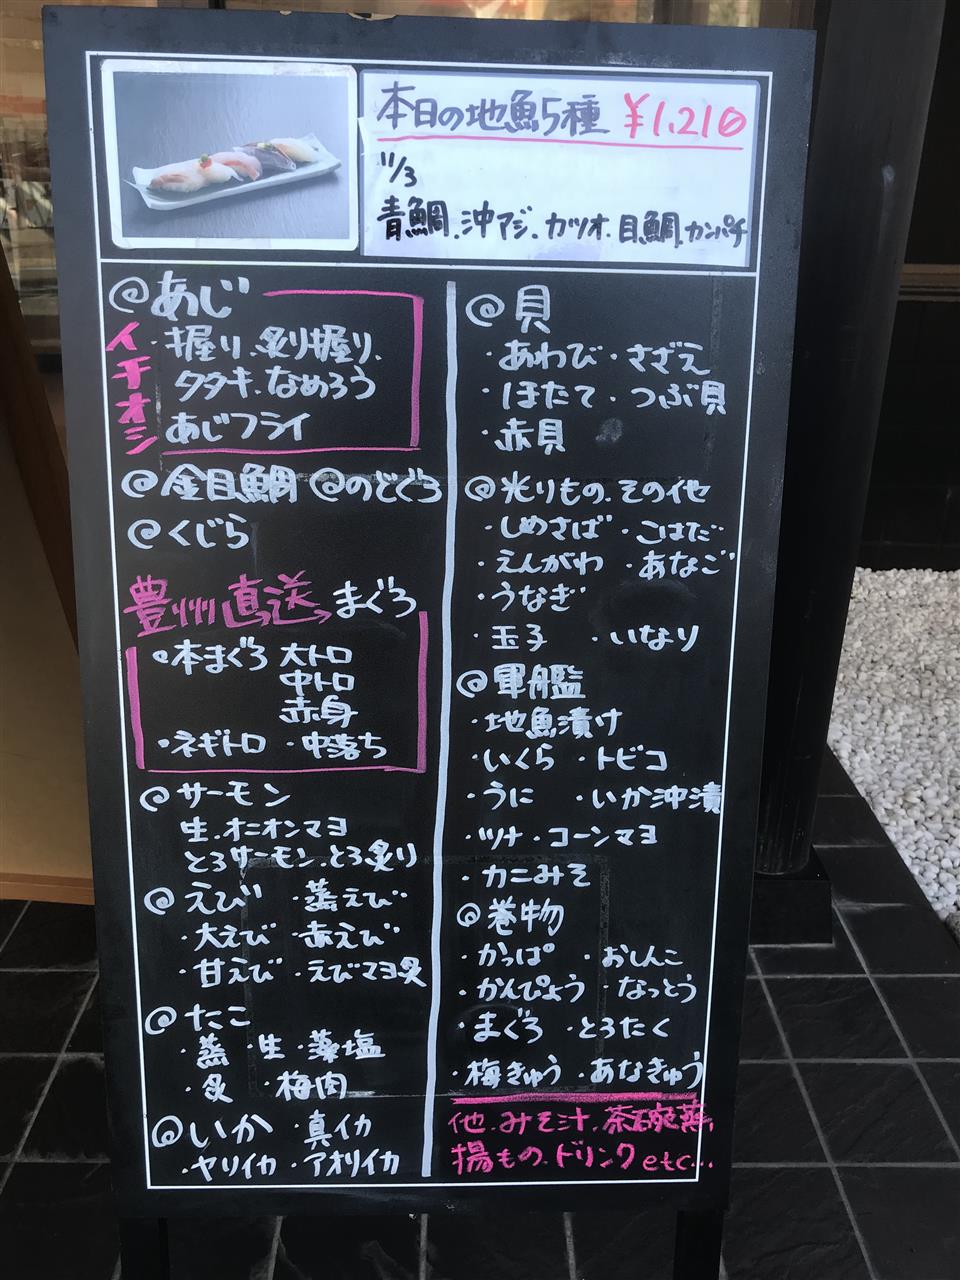 本日の地魚5種 ¥1,210
11/3
青鯛、沖アジ、カツオ、目鯛、カンパチ
@あじ
イチオシ
・握り、炙り握り、
タタキ、なめろう
あじフライ
@金目鯛 @のどぐろ
@くじら
豊州直送→まぐろ
・本まぐろ 大トロ
中トロ
赤身
・ネギトロ ・中落ち
@サーモン
生、オニオンマヨ
とろサーモン、とろ炙り
@えび ・蒸えび
・大えび ・赤えび
・甘えび ・えびマヨ炙
@たこ
・蒸 ・生 ・藻塩
・炙 ・梅肉
@いか ・真イカ
・ヤリイカ ・アオリイカ
@貝
・あわび ・さざえ
・ほたて ・つぶ貝
・赤貝
@光りもの、その他
・しめさば ・こはだ
・えんがわ ・あなご
・うなぎ
・玉子 ・いなり
@軍艦
・地魚漬け
・いくら ・トビコ
・うに ・いか沖漬
・ツナ ・コーンマヨ
・カニみそ
@巻物
・かっぱ ・おしんこ
・かんぴょう ・なっとう
・まぐろ ・とろたく
・梅きゅう ・あなきゅう
他、みそ汁、茶碗蒸、
揚もの、ドリンクetc...